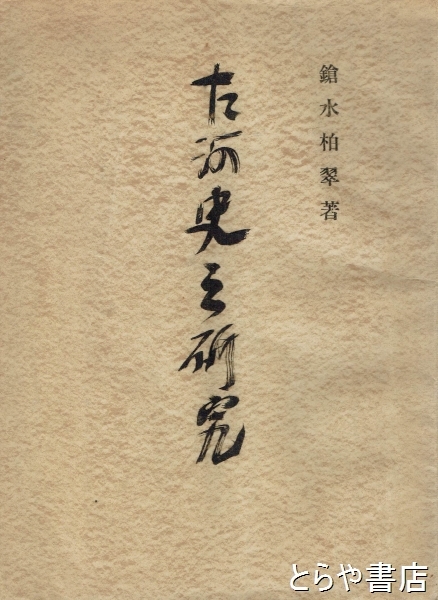 鎗水柏翠著
古河史之研究
とらや書店